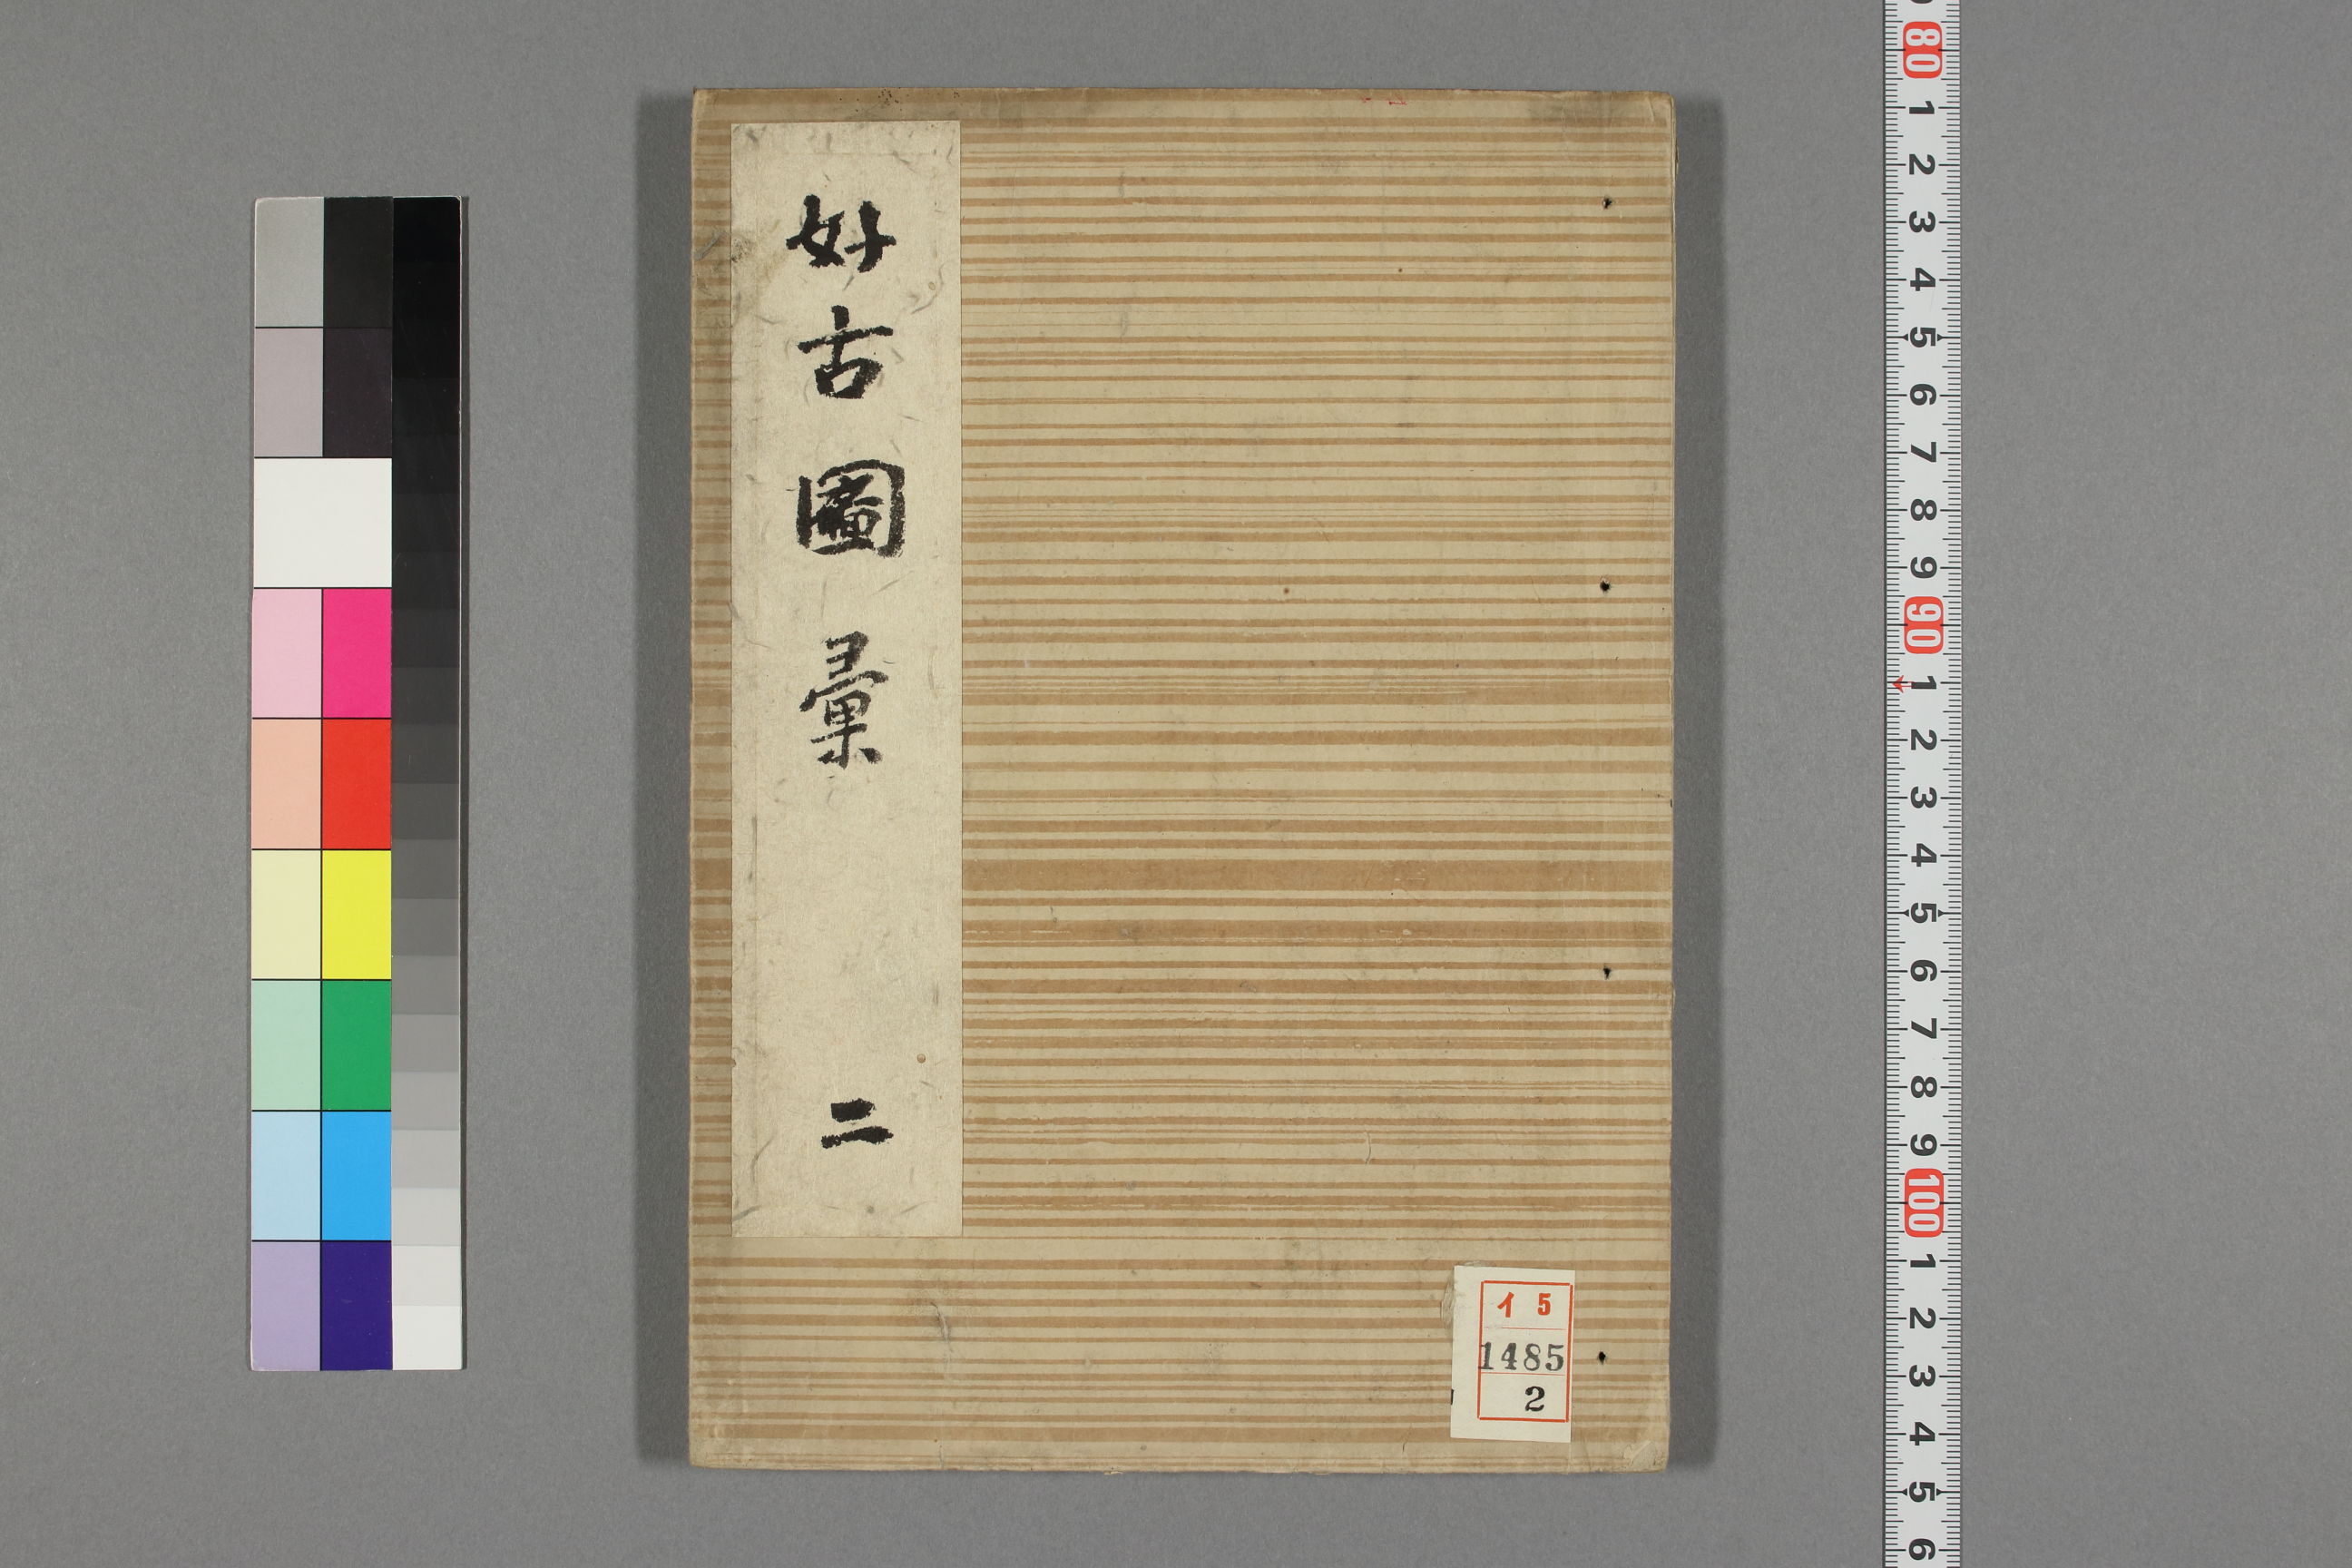 好古圖彙 二
イ 5
1485
2
80
1
2
3
4
5
6
7
8
9
90
1
2
3
4
5
6
7
8
9
100
1
2
3
4
5
6